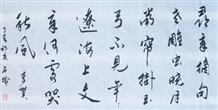 寻章摘句
老雕虫晓月
当帘挂玉
弓不见年年
辽海上文
章何处哭
秋风
李贺